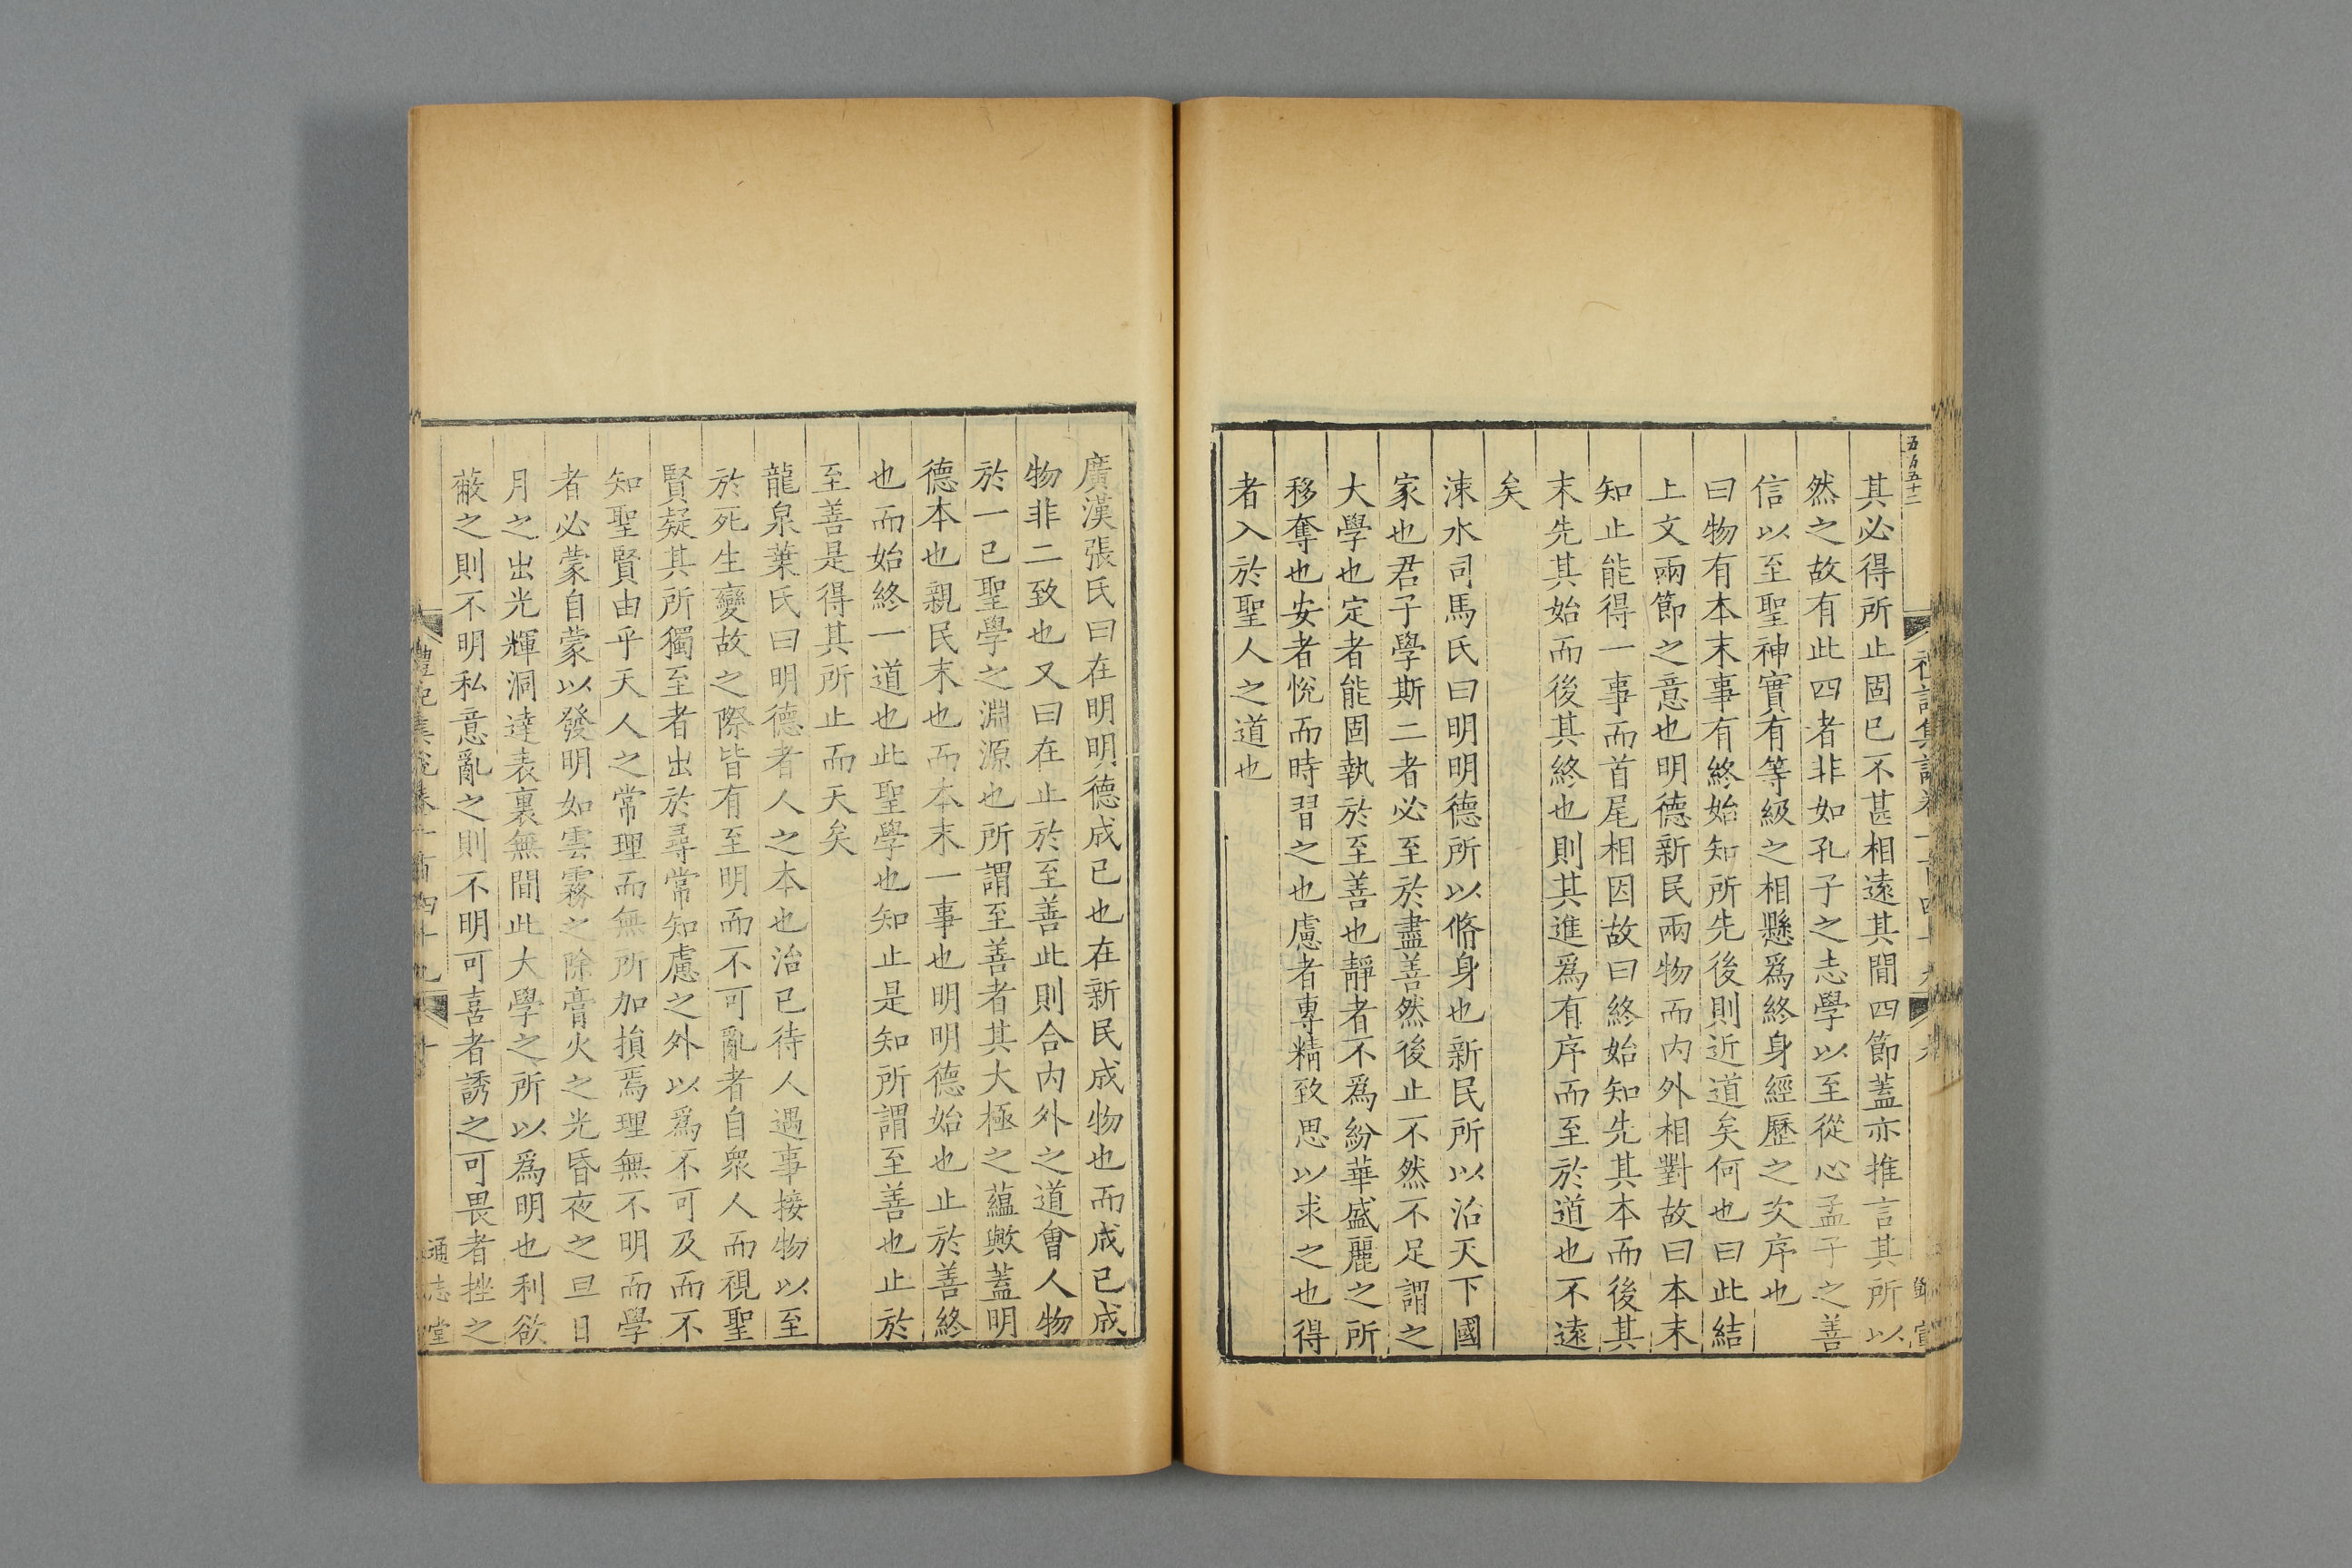 其必得所止固已不甚相遠其間四節蓋亦推言其所以
然之故有此四者非如孔子之志學以至從心孟子之善
信以至聖神實有等級之相懸爲終身經歷之次序也
曰物有本末事有終始知所先後則近道矣何也曰此結
上文兩節之意也明德新民兩物而内外相對故曰本末
知止能得一事而首尾相因故曰終始知先其本而後其
末先其始而後其終也則其進爲有序而至於道也不遠
矣
涑水司馬氏曰明明德所以脩身也新民所以治天下國
家也君子學斯二者必至於盡善然後止不然不足謂之
大學也定者能固執於至善也靜者不爲紛華盛麗之所
移奪也安者悅而時習之也慮者專精致思以求之也得
者入於聖人之道也
廣漢張氏曰在明明德成己也在新民成物也而成已成
物非二致也又曰在止於至善此則合内外之道會人物
於一已聖學之淵源也所謂至善者其大極之蘊歟蓋明
德本也親民末也而本末一事也明明德始也止於善終
也而始終一道也此聖學也知止是知所謂至善也止於
至善是得其所止而天矣
龍泉葉氏曰明德者人之本也治已待人遇事接物以至
於死生變故之際皆有至明而不可亂者自衆人而視聖
賢疑其所獨至者出於尋常知慮之外以爲不可及而不
知聖賢由乎天人之常理而無所加損焉理無不明而學
者必蒙自蒙以發明如雲霧之除膏火之光昏夜之旦日
月之出光輝洞達表裏無間此大學之所以爲明也利欲
蔽之則不明私意亂之則不明可喜者誘之可畏者挫之
禮記集說卷一百四十九 十
通志堂